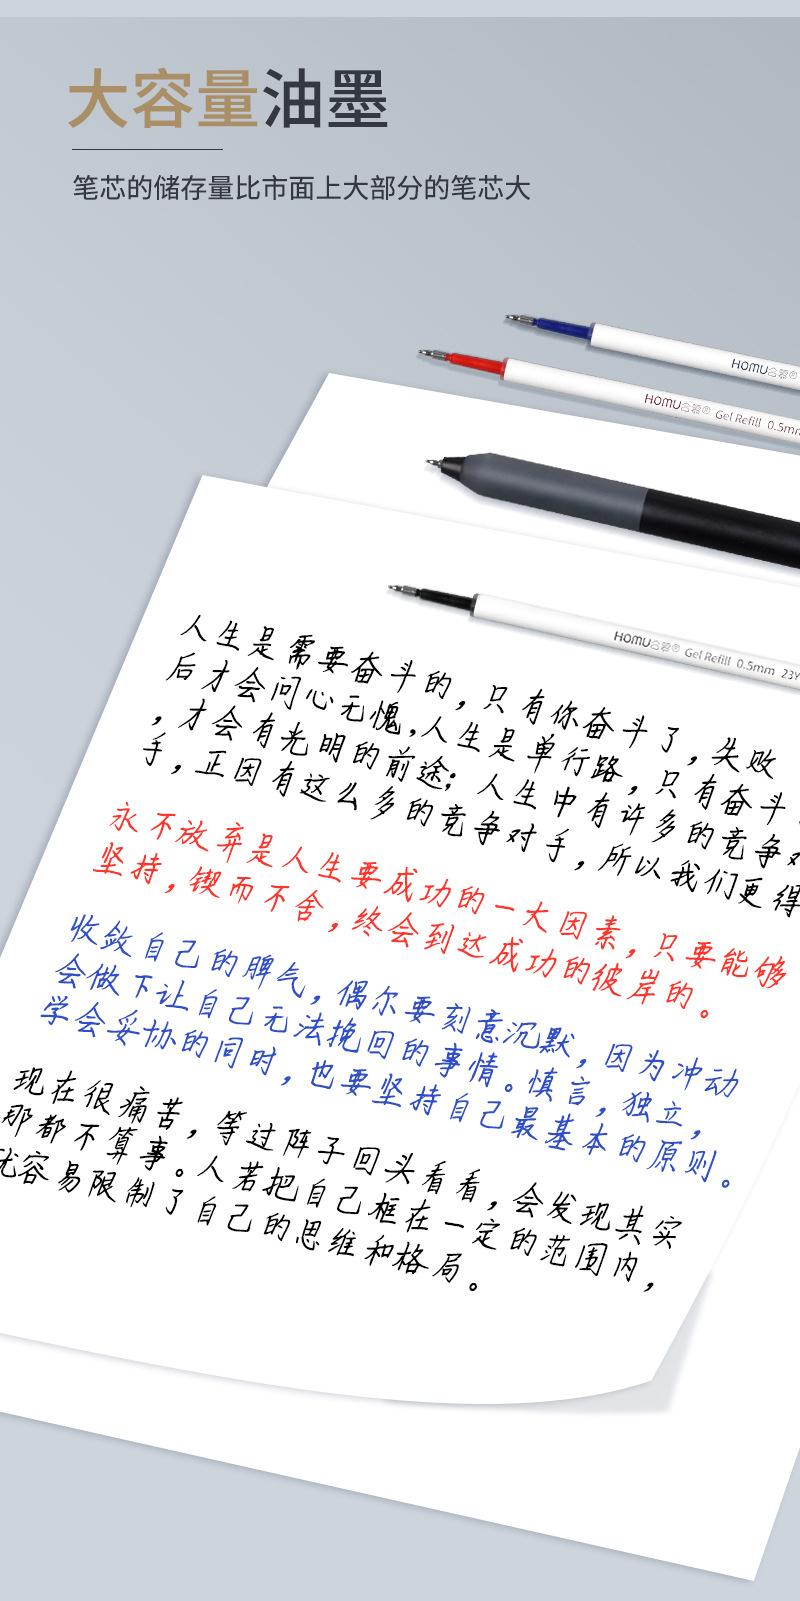 大容量油墨
笔芯的储存量比市面上大部分的笔芯大
HOMU
HOMU Gel Refill 0.5mm
HOMU Gel Refill 0.5mm 23Y
人生是需要奋斗的，只有你奋斗了，失败
后才会问心无愧，人生是单行路，只有奋斗
，才会有光明的前途；人生中有许多的竞争对
手，正因有这么多的竞争对手，所以我们更得
永不放弃是人生要成功的一大因素，只要能够
坚持，锲而不舍，终会到达成功的彼岸的。
收敛自己的脾气，偶尔要刻意沉默，因为冲动
会做下让自己无法挽回的事情。慎言，独立，
学会妥协的同时，也要坚持自己最基本的原则。
现在很痛苦，等过阵子回头看看，会发现其实
那都不算事。人若把自己框在一定的范围内，
容易限制了自己的思维和格局。